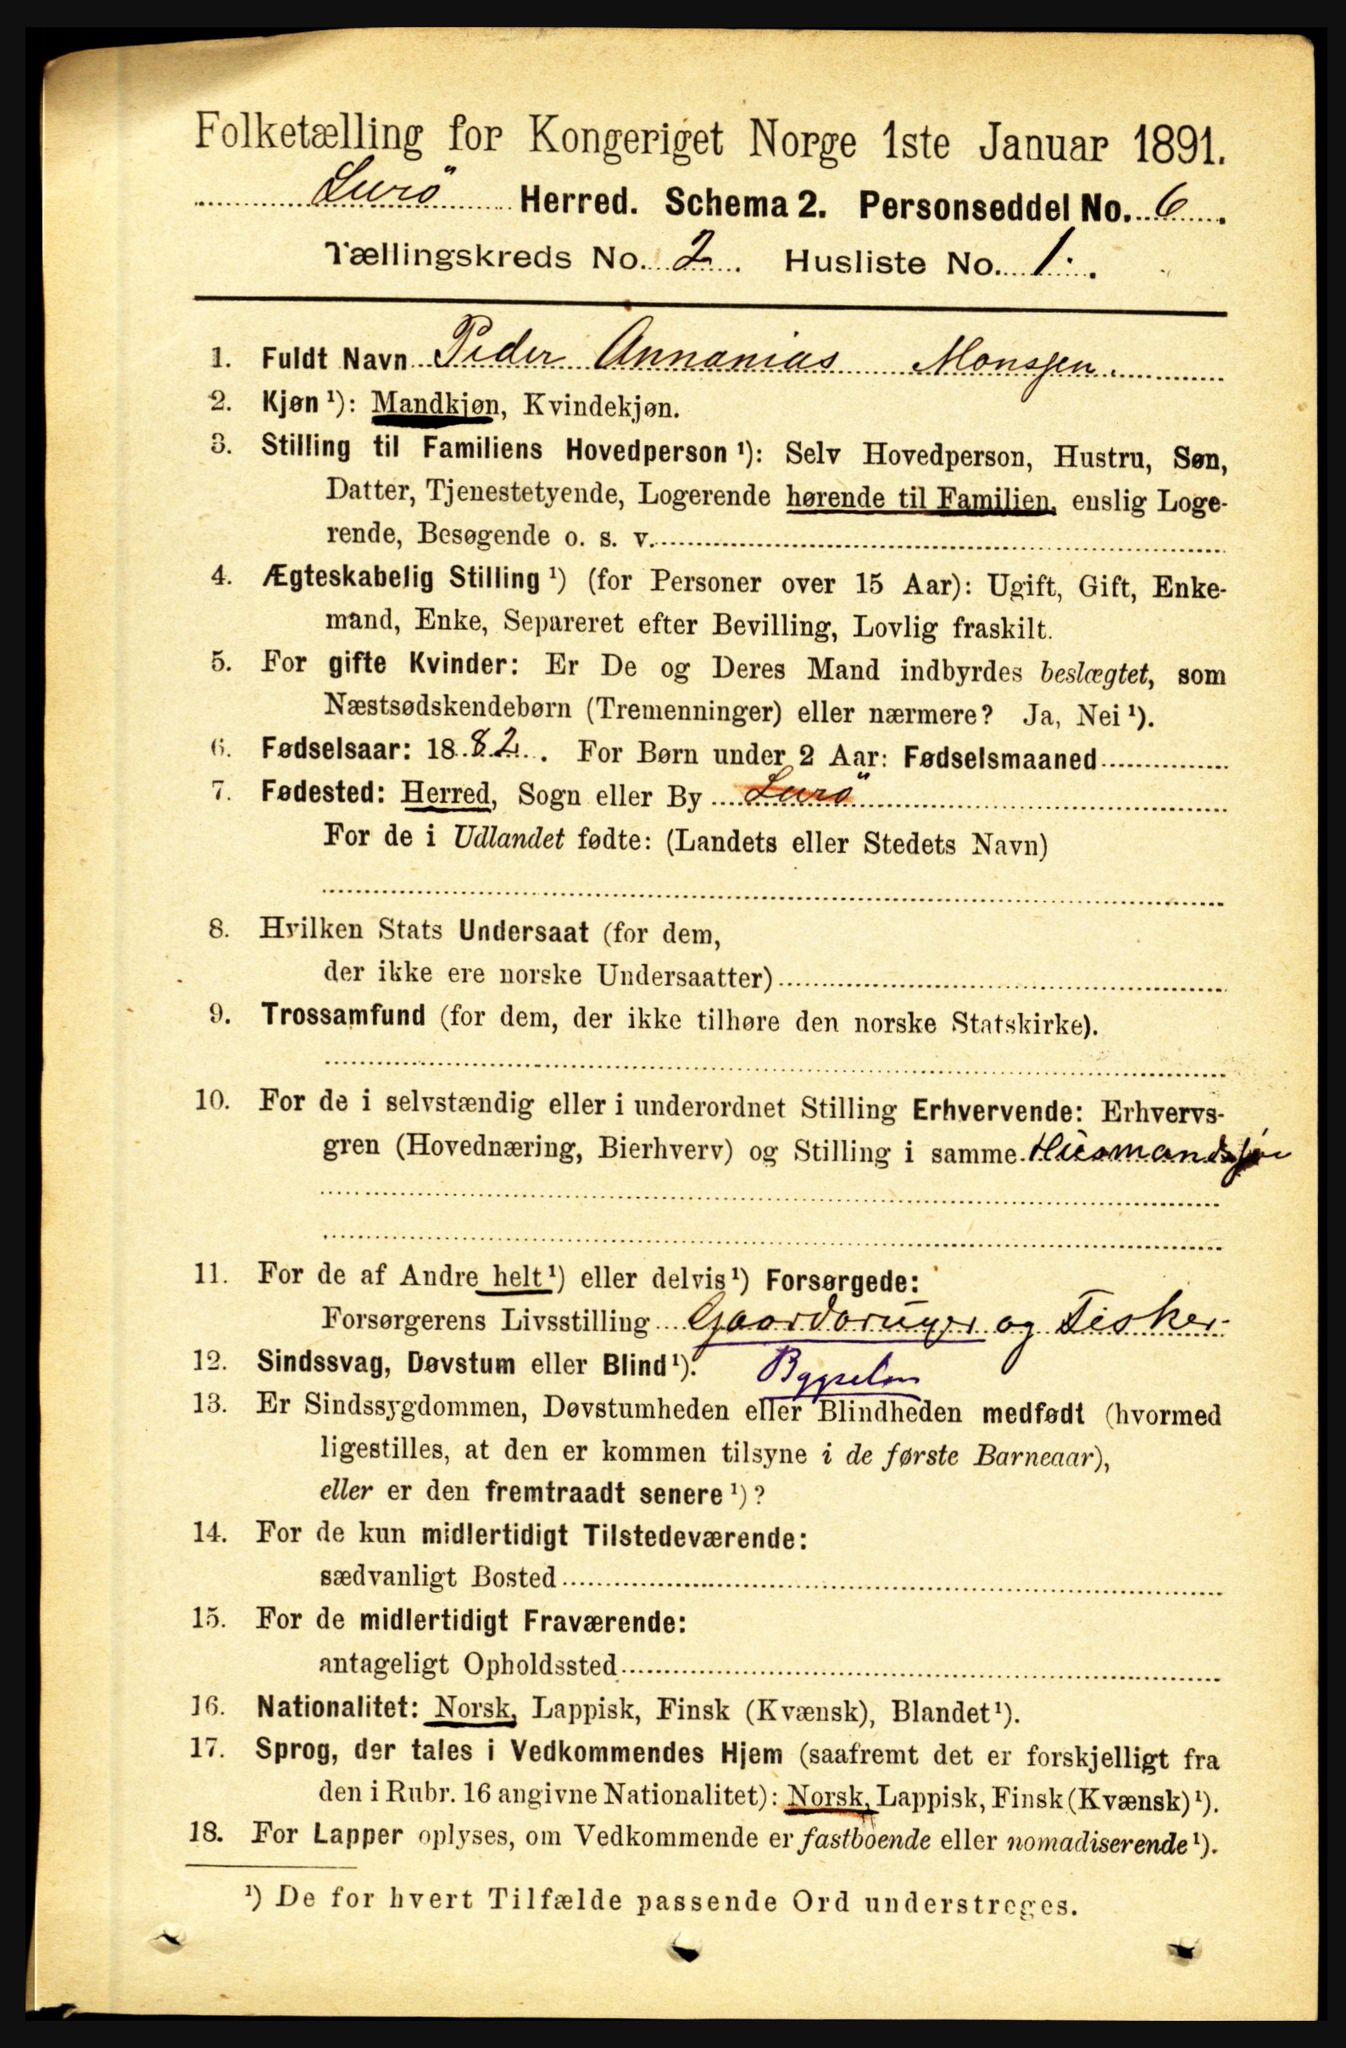 Folketælling for Kongeriget Norge 1ste Januar 1891.
Lurö Herred. Schema 2. Personseddel No. 6.
Tællingskreds No. 2. Husliste No. 1.
1. Fuldt Navn Peder Annanias Monssen.
2. Kjøn ¹): Mandkjøn, Kvindekjøn.
3. Stilling til Familiens Hovedperson ¹): Selv Hovedperson, Hustru, Søn,
Datter, Tjenestetyende, Logerende hørende til Familien, enslig Loge-
rende, Besøgende o. s. v.
4. Ægteskabelig Stilling ¹) (for Personer over 15 Aar): Ugift, Gift, Enke-
mand, Enke, Separeret efter Bevilling, Lovlig fraskilt.
5. For gifte Kvinder: Er De og Deres Mand indbyrdes beslægtet, som
Næstsødskendebørn (Tremenninger) eller nærmere? Ja, Nei ¹).
6. Fødselsaar: 1882. For Børn under 2 Aar: Fødselsmaaned
7. Fødested: Herred, Sogn eller By Lurö
For de i Udlandet fødte: (Landets eller Stedets Navn)
8. Hvilken Stats Undersaat (for dem,
der ikke ere norske Undersaatter)
9. Trossamfund (for dem, der ikke tilhøre den norske Statskirke).
10. For de i selvstændig eller i underordnet Stilling Erhvervende: Erhvervs-
gren (Hovednæring, Bierhverv) og Stilling i samme Husmandssøn
11. For de af Andre helt ¹) eller delvis ¹) Forsørgede:
Forsørgerens Livsstilling Gaardbruger og Fisker
12. Sindssvag, Døvstum eller Blind ¹). Bygselm
13. Er Sindssygdommen, Døvstumheden eller Blindheden medfødt (hvormed
ligestilles, at den er kommen tilsyne i de første Barneaar),
eller er den fremtraadt senere ¹)?
14. For de kun midlertidigt Tilstedeværende:
sædvanligt Bosted
15. For de midlertidigt Fraværende:
antageligt Opholdssted
16. Nationalitet: Norsk, Lappisk, Finsk (Kvænsk), Blandet ¹).
17. Sprog, der tales i Vedkommendes Hjem (saafremt det er forskjelligt fra
den i Rubr. 16 angivne Nationalitet): Norsk, Lappisk, Finsk (Kvænsk) ¹).
18. For Lapper oplyses, om Vedkommende er fastboende eller nomadiserende ¹).
¹) De for hvert Tilfælde passende Ord understreges.